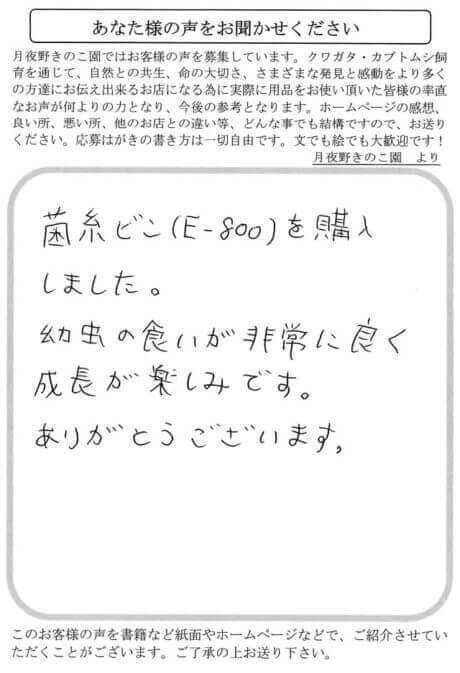 あなた様の声をお聞かせください
月夜野きのこ園ではお客様の声を募集しています。クワガタ・カブトムシ飼
育を通じて、自然との共生、命の大切さ、さまざまな発見と感動をより多く
の方達にお伝え出来るお店になる為に実際に用品をお使い頂いた皆様の率直
なお声が何よりの力となり、今後の参考となります。ホームページの感想、
良い所、悪い所、他のお店との違い等、どんな事でも結構ですので、お送り
ください。応募はがきの書き方は一切自由です。文でも絵でも大歓迎です！
月夜野きのこ園　より
菌糸ビン(E-800)を購入
しました。
幼虫の食いが非常に良く
成長が楽しみです。
ありがとうございます。
このお客様の声を書籍など紙面やホームページなどで、ご紹介させてい
ただくことがございます。ご了承の上お送り下さい。